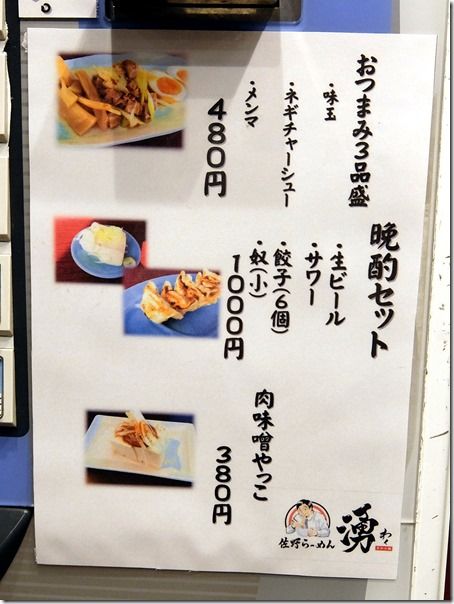 おつまみ3品盛
・味玉
・ネギチャーシュー
・メンマ
480円
晩酌セット
・生ビール
・サワー
・餃子(6個)
・奴(小)
1000円
肉味噌やっこ
380円
佐野らーめん
湧
わく